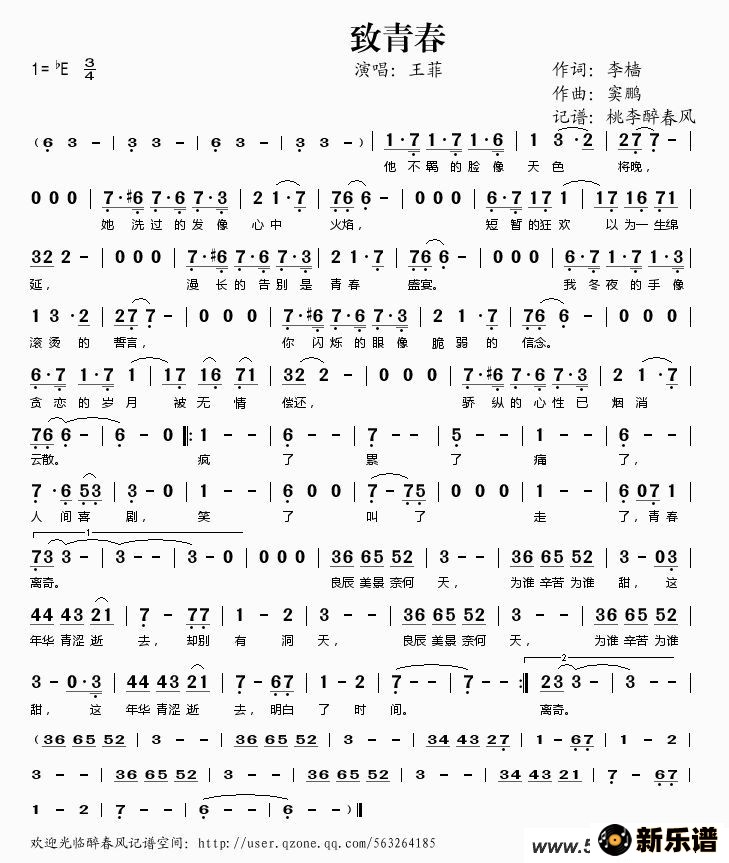 致青春
1=♭E 3/4
演唱：王菲
作词：李樯
作曲：窦鹏
记谱：桃李醉春风
(6 3 - | 3 - - | 6 3 - | 3 - - ) | 1·7 1·7 1·6 | 1 3·2 | 27 7 - |
他不羁的脸像 天色 将晚，
0 0 0 | 7·#6 7·6 7·3 | 2 1·7 | 76 6 - | 0 0 0 | 6·7 17 1 | 17 16 71 |
她洗过的发像 心中 火焰， 短暂的狂欢 以为一生绵
32 2 - | 0 0 0 | 7·#6 7·6 7·3 | 2 1·7 | 76 6 - | 0 0 0 | 6·7 1·7 1·3 |
延， 漫长的告别是 青春 盛宴。 我冬夜的手像
1 3·2 | 27 7 - | 0 0 0 | 7·#6 7·6 7·3 | 2 1·7 | 76 6 - | 0 0 0 |
滚烫的 誓言， 你闪烁的眼像 脆弱的 信念。
6·7 1·7 1 | 17 16 71 | 32 2 - | 0 0 0 | 7·#6 7·6 7·3 | 2 1·7 |
贪恋的岁月 被无情 偿还， 骄纵的心性已 烟消
76 6 - | 6 - 0 |: 1 - - | 6 - - | 7 - - | 5 - - | 1 - - | 6 - - |
云散。 疯 了 累 了 痛 了，
7·6 53 | 3 - 0 | 1 - - | 6 0 0 | 7 - 75 | 0 0 0 | 1 - - | 6 071 |
人间喜 剧， 笑 了 叫 了 走 了，青春
1
73 3 - | 3 - - | 3 - 0 | 0 0 0 | 36 65 52 | 3 - - | 36 65 52 | 3 - 03 |
离奇。 良辰美景奈何 天， 为谁辛苦为谁 甜，这
44 43 21 | 7 - 77 | 1 - 2 | 3 - - | 36 65 52 | 3 - - | 36 65 52 |
年华青涩逝 去，却别 有 洞 天， 良辰美景奈何 天， 为谁辛苦为谁
2
3 - 0·3 | 44 43 21 | 7 - 67 | 1 - 2 | 7 - - | 7 - - :| 23 3 - | 3 - - |
甜， 这 年华青涩逝 去，明白 了 时 间。 离奇。
(36 65 52 | 3 - - | 36 65 52 | 3 - - | 34 43 27 | 1 - 67 | 1 - 2 |
3 - - | 36 65 52 | 3 - - | 36 65 52 | 3 - - | 34 43 21 | 7 - 67 |
1 - 2 | 7 - - | 6 - - | 6 - - )||
欢迎光临醉春风记谱空间：http://user.qzone.qq.com/563264185
www.5
新乐谱